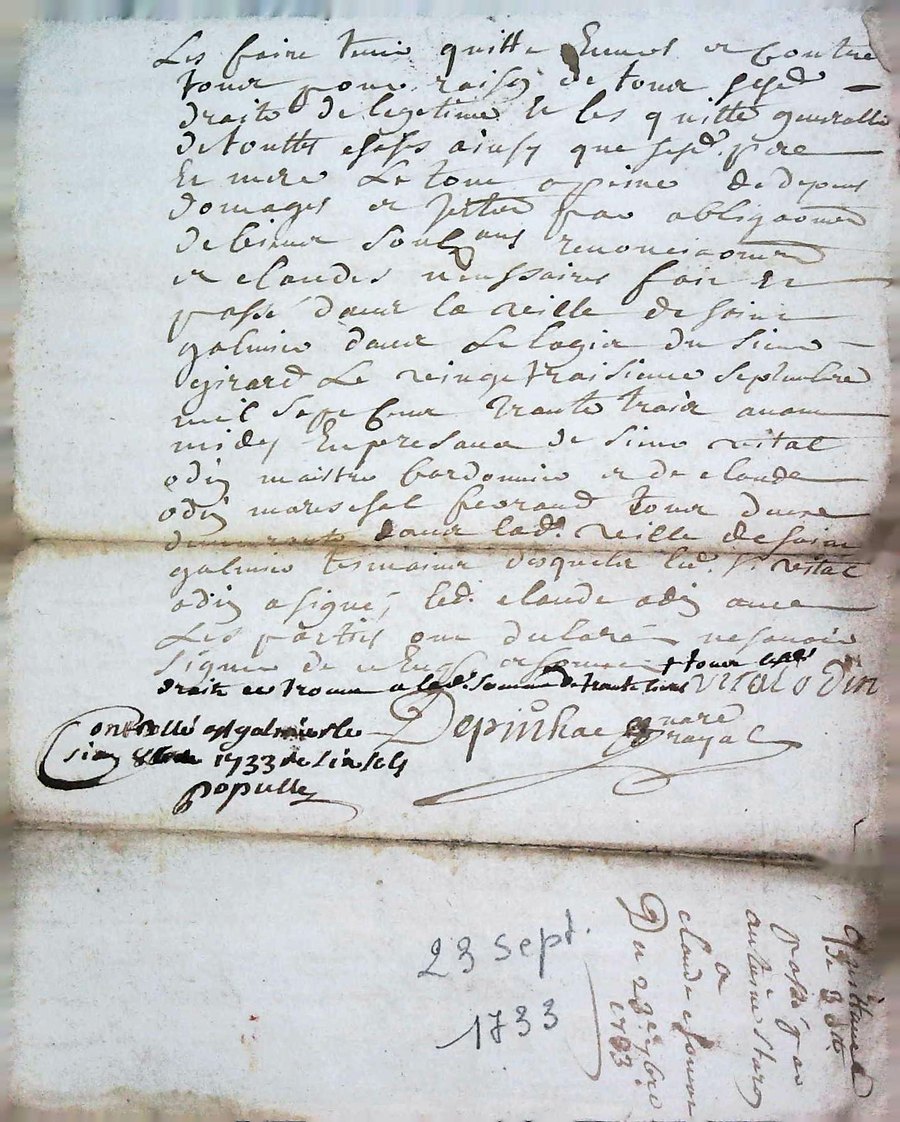 Les faire tenir quitte Envers et Contre
tous pour raison de tous sesd.
droits de legetime Et les quitte generalle
de touttes choses ainsy que sesd. pere
Et mere Le tout appeine de depens
domages et par obligaones
de biens renonciaones
et clauses necessaires fait Et
passé dans la ville de saint
galmier dans Le logis du sieur
girard Le vingt troisieme septembre
mil sept Cent trante trois avant
midy En presance de sieur vital
odin maitre Cordonnier et de claude
odin mareschal ferrand tous deux
demeurants dans lad. ville de saint
galmier tesmoins desquels led. s. vital
odin a signé, led. claude odin avec
Les parties ont declaré ne savoir
signer de ce Enquis
droits a lad. somme de trante livres Vital odin
Controllé a st galmier le
1733
populle
Depinhac nore
royal
23 sept.
1733
Quittance
De 30tt
passé par
antoine
a
claude
Du 23e 7bre
1733